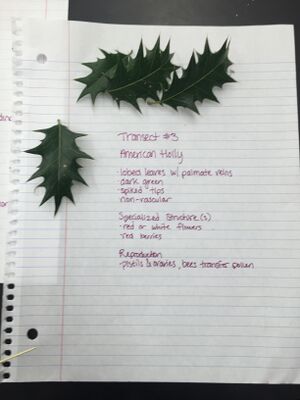 Transect #3
American Holly
- lobed leaves w/ palmate veins
- dark green
- "spiked" tips
- non-vascular
Specialized Structure(s)
- red or white flowers
- red berries
Reproduction
- pistils & ovaries, bees transfer pollen